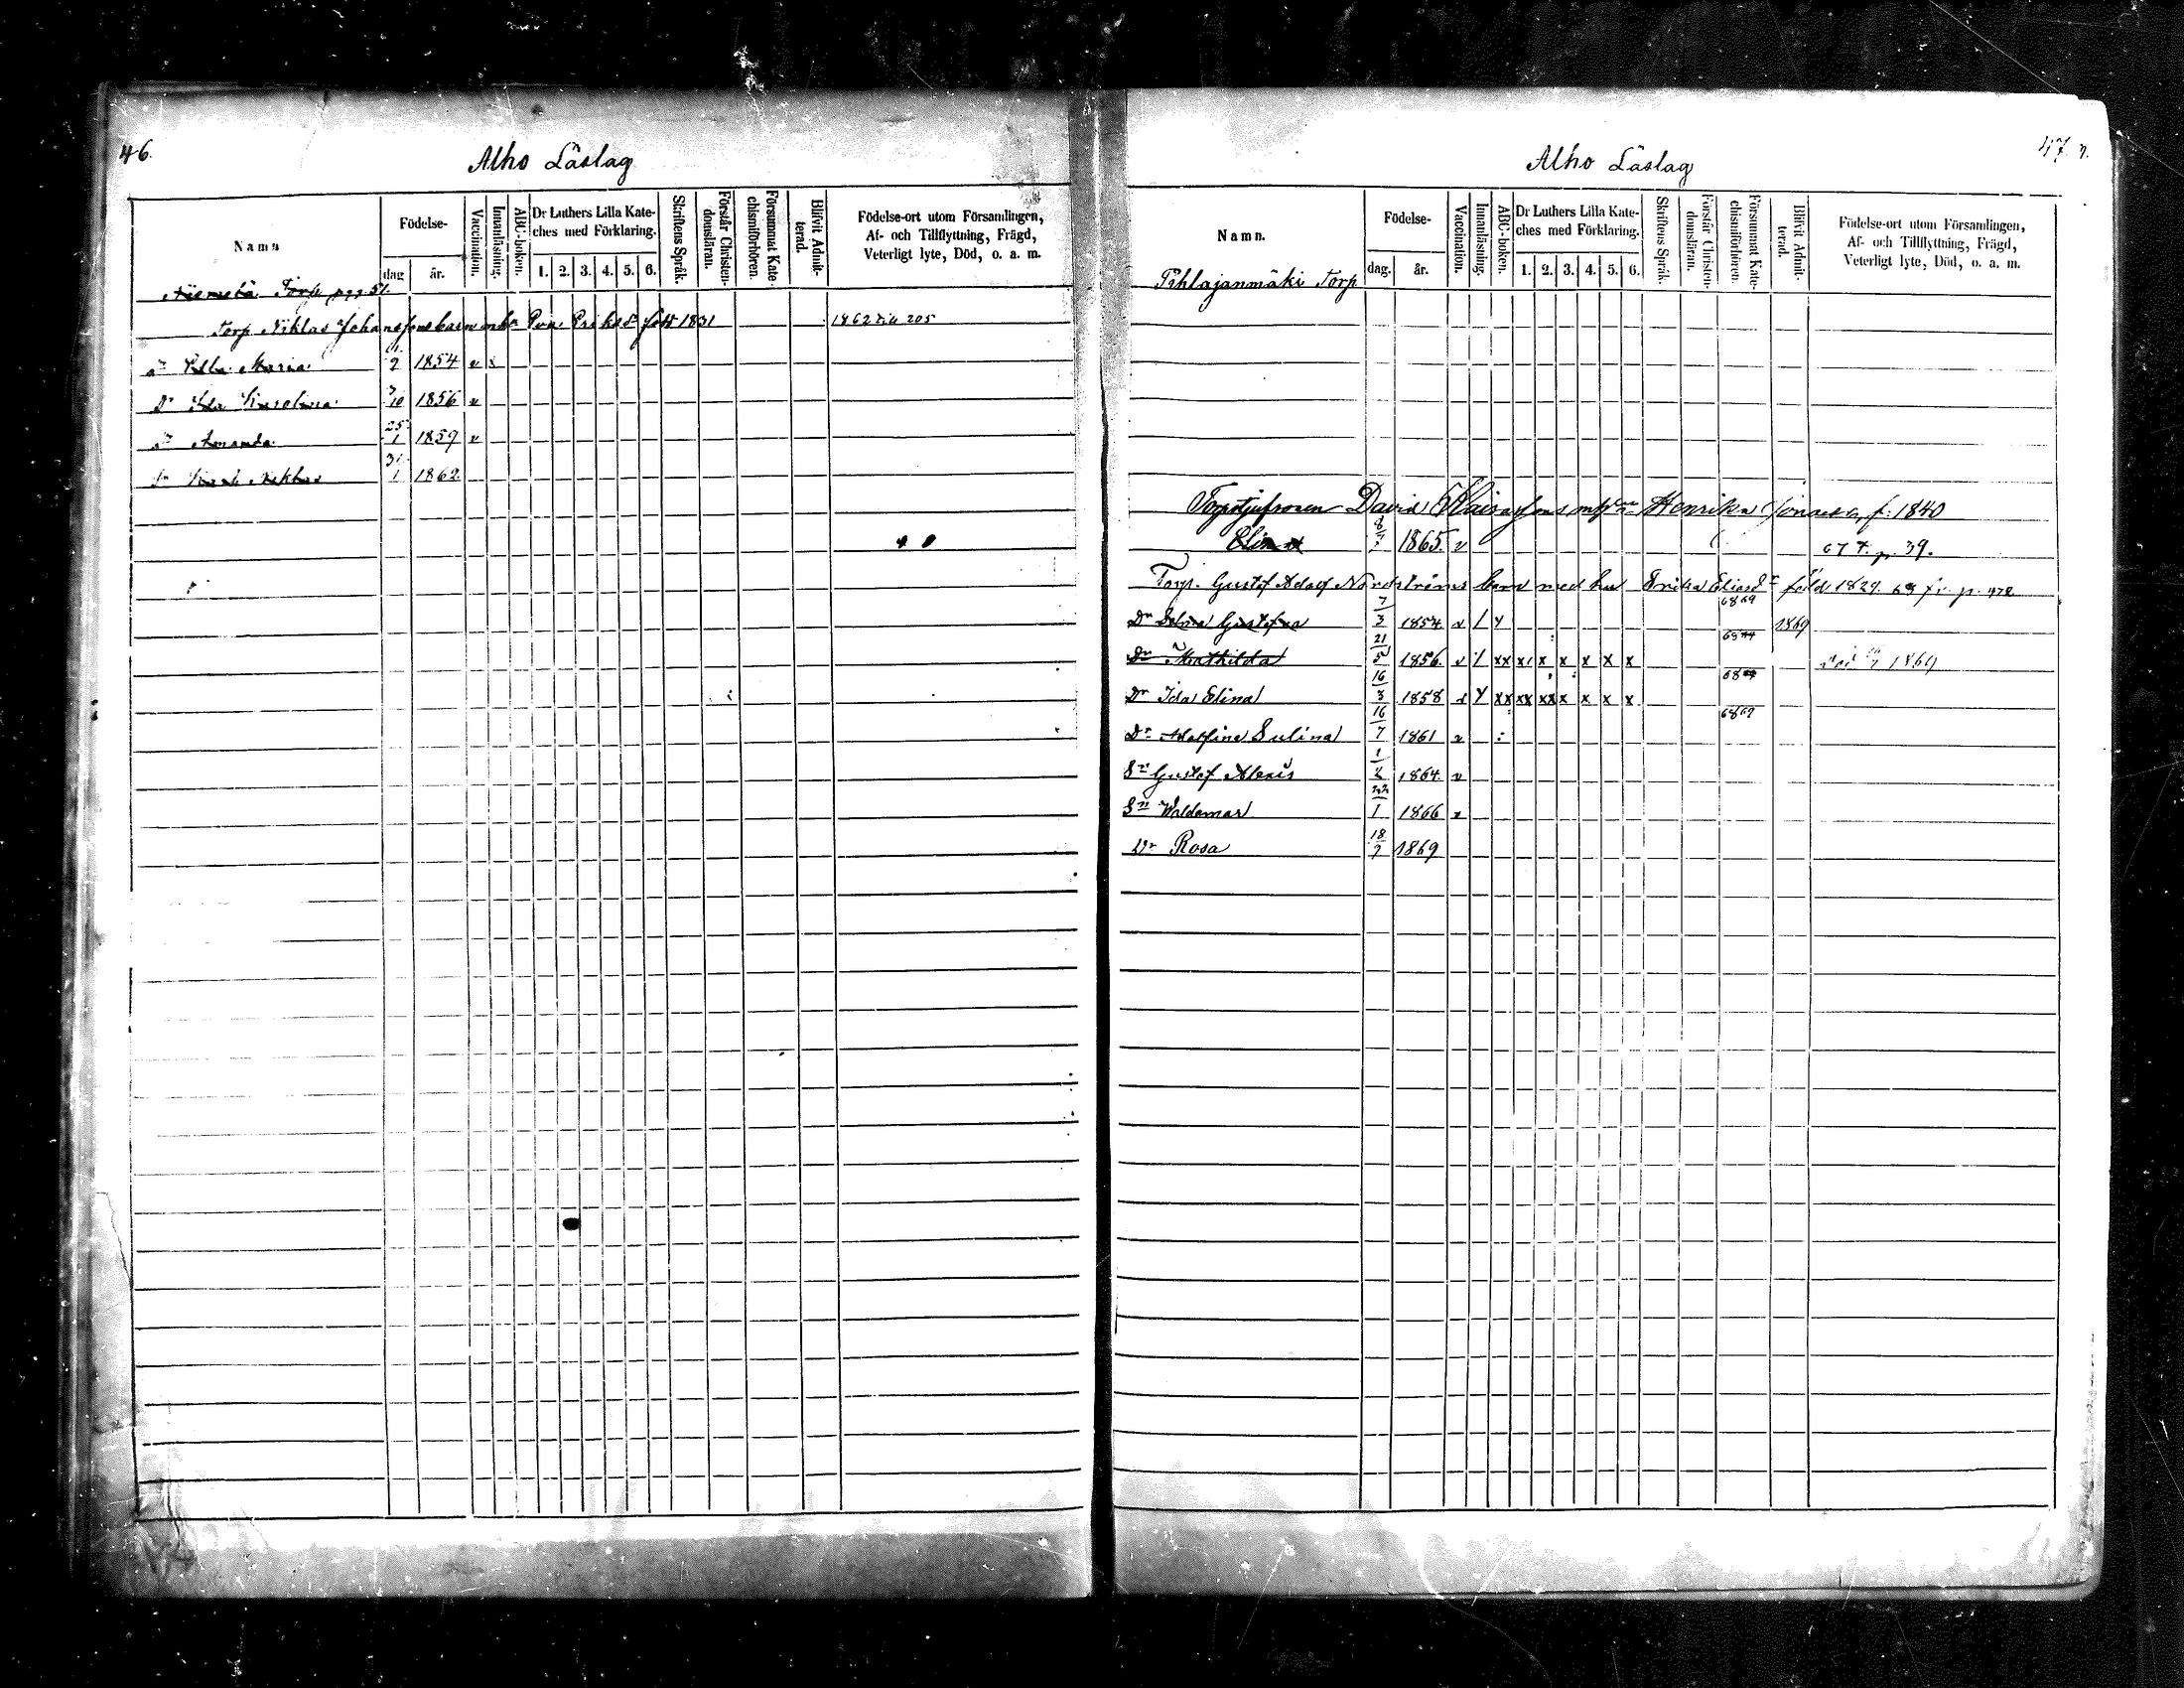 46.
Alho Läslag
Namn
Födelse-
dag
år.
Vaccination.
Innanläsning.
ABC-boken.
Dr Luthers Lilla Kate-
ches med Förklaring.
1. 2. 3. 4. 5. 6.
Skriftens Språk.
Förstår Christen-
domsläran.
Försummat Kate-
chismiförhören.
Blifvit Admit-
terad.
Födelse-ort utom Församlingen,
Af- och Tillflyttning, Frägd,
Veterligt lyte, Död, o. a. m.
Niemelä Torp pag 51.
Torp Niklas Johanssons barn Eva född 1831 1862 205
Maria 2 1854 v
Dr Ida Karolina 10 1856 v
Dr Amanda 25 1 1859 v
Niklas 31 1 1862
47.
Alho Läslag
Namn.
Födelse-
dag.
år.
Vaccination.
Innanläsning.
ABC-boken.
Dr Luthers Lilla Kate-
ches med Förklaring.
1. 2. 3. 4. 5. 6.
Skriftens Språk.
Förstår Christen-
domsläran.
Försummat Kate-
chismiförhören.
Blifvit Admit-
terad.
Födelse-ort utom Församlingen,
Af- och Tillflyttning, Frägd,
Veterligt lyte, Död, o. a. m.
Pihlajanmäki Torp
David Henrika f. 1840
Elin 8 7 1865 v 67 p. 39.
Torp. Gustaf Adolf Nordströms barn med hu Erika Eliasd:r född 1829. 69 p. 472
Dr Gustafva 7 3 1854 v 6869 1869
Dr Mathilda 21 5 1856 v xx x x x x x x död 1869
Dr Ida Elina 16 3 1858 v xx xx xx x x x x
Dr Adolfina Sulina 16 7 1861 v 6869
Sn Gustaf Alexis 1 1864 v
Sn Waldemar 22 1 1866 v
Dr Rosa 18 7 1869